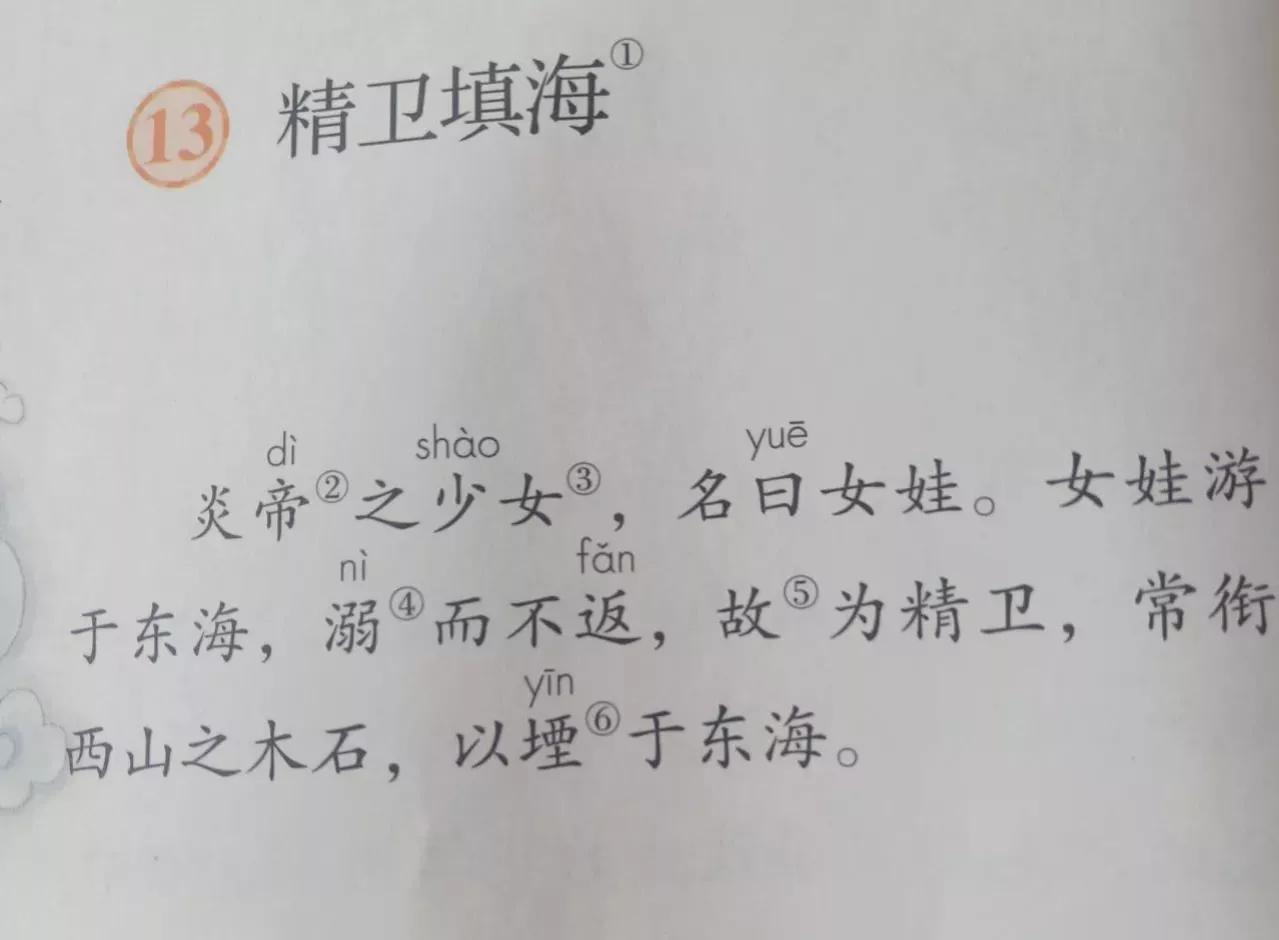 13 精卫填海①
dì shào yuē
炎帝②之少女③，名曰女娃。女娃游
nì fǎn
于东海，溺④而不返，故⑤为精卫，常衔
yīn
西山之木石，以堙⑥于东海。